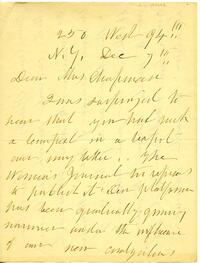 250 West 94th
N.Y. Dec 7th
Dear Mrs Chapman
I was surprised to
hear that you had such
a tempest in a teapot
over my letter.. The
Woman's Journal refuses
to publish it. Our platform
has been gradually growing
narrower under the influence
of our now conservative